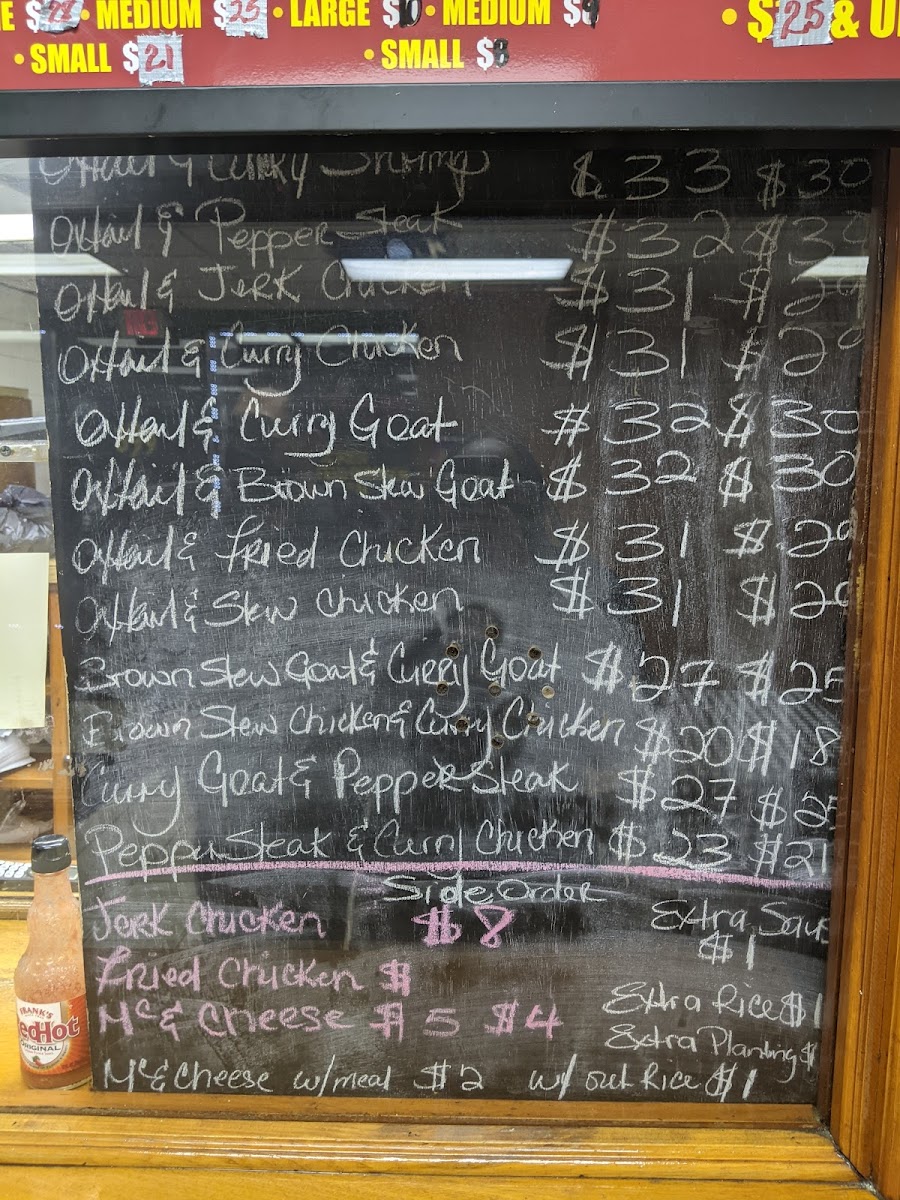 E $28 • MEDIUM $25 • LARGE $10 • MEDIUM $9 • $25 & U
• SMALL $21 • SMALL $8
Oxtail & Curry Shrimp $33 $30
Oxtail & Pepper Steak $32 $30
Oxtail & Jerk Chicken $31 $29
Oxtail & Curry Chicken $31 $29
Oxtail & Curry Goat $32 $30
Oxtail & Brown Stew Goat $32 $30
Oxtail & Fried Chicken $31 $29
Oxtail & Stew Chicken $31 $29
Brown Stew Goat & Curry Goat $27 $25
Brown Stew Chicken & Curry Chicken $20 $18
Curry Goat & Pepper Steak $27 $25
Pepper Steak & Curry Chicken $23 $21
Side Order
Jerk Chicken $8 Extra Sauc
$1
Fried Chicken $
Extra Rice $1
Mc & Cheese $5 $4
Extra Planting $1
Mc & Cheese w/meal $2 w/ out Rice $1
FRANK'S
RedHot
ORIGINAL